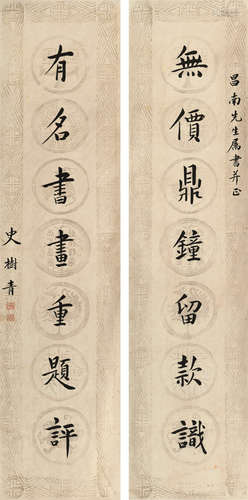 昌南先生属書并正
無價鼎鐘留款識
有名書畫重題評
史樹青